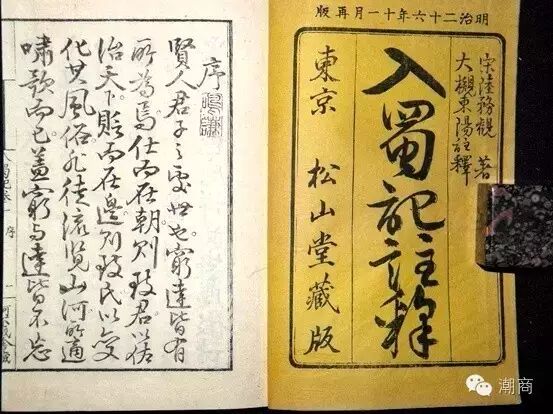 明治二十六年十一月再版
宋陸務観 著
大槻東陽註釋
入蜀記註釋
東京 松山堂藏版
序
賢人君子之處世也窮達皆有
所為焉仕而在朝則致君以佐
治天下貶而在邊則致民以變
化其風俗非徒流覽山河所
嘯歌而已蓋窮与達皆不忘
潮商